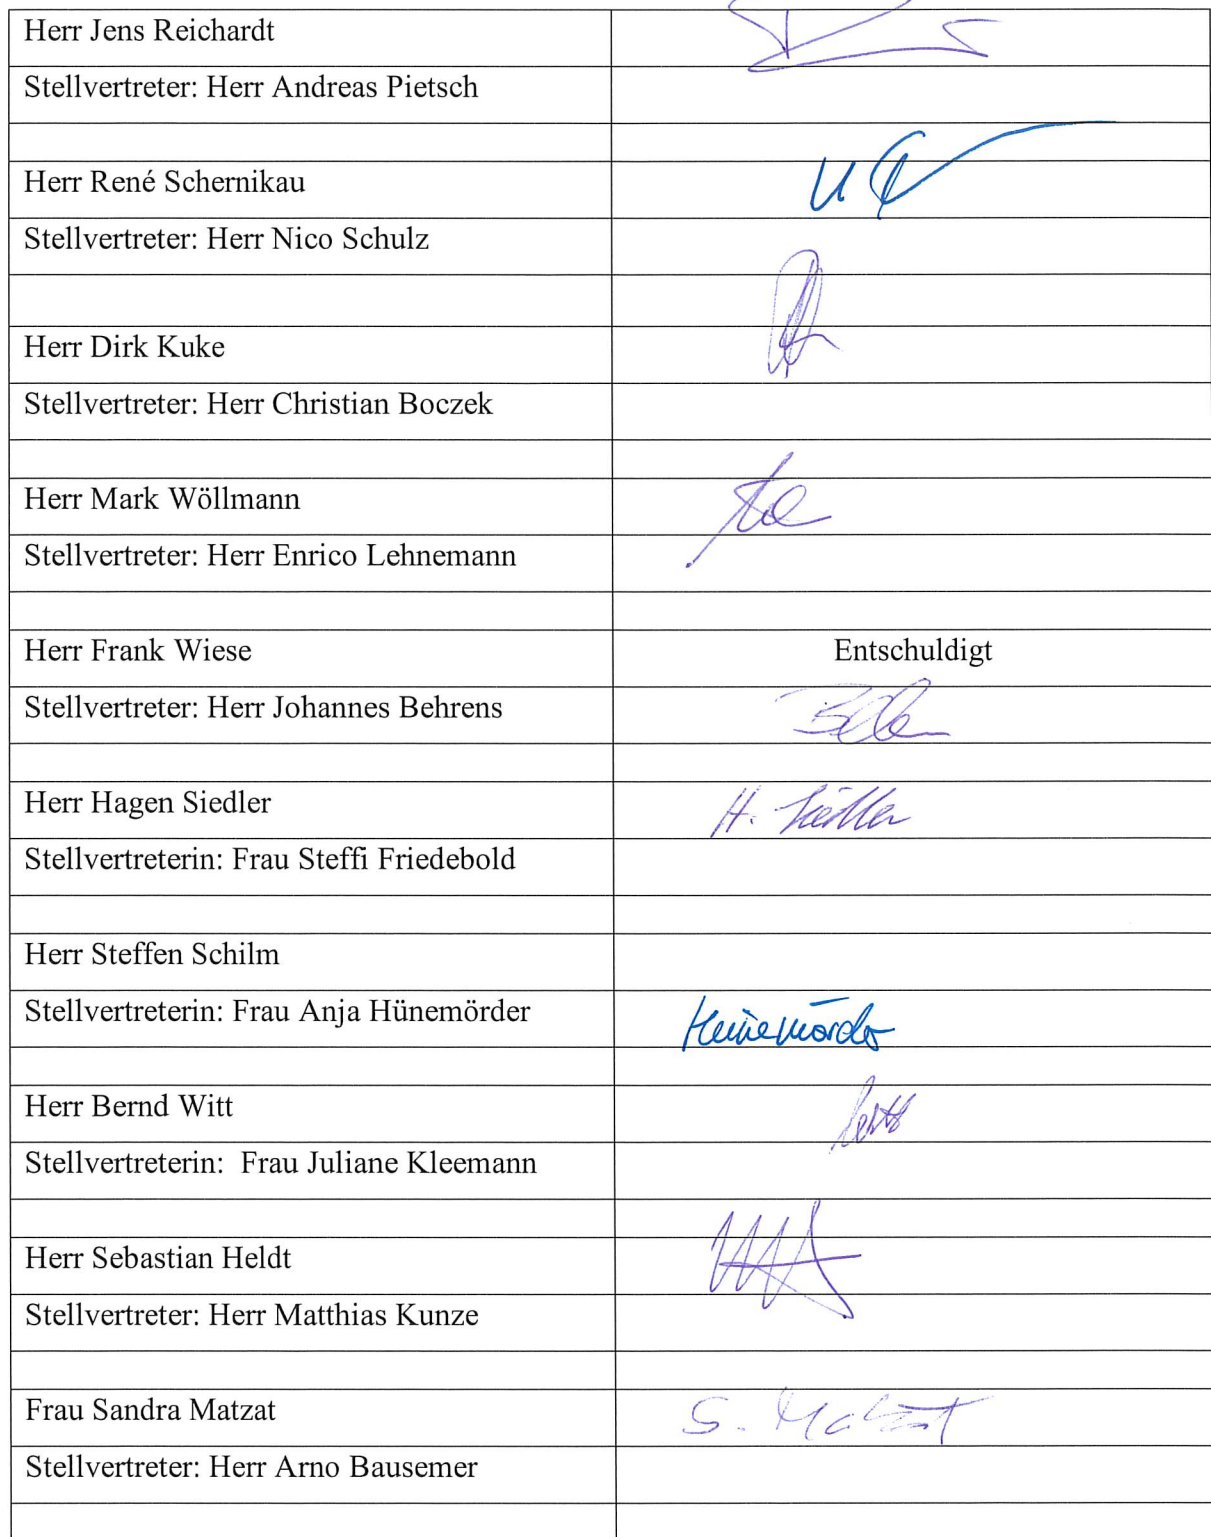 Herr Jens Reichardt
Stellvertreter: Herr Andreas Pietsch
Herr René Schernikau
Stellvertreter: Herr Nico Schulz
Herr Dirk Kuke
Stellvertreter: Herr Christian Boczek
Herr Mark Wöllmann
Stellvertreter: Herr Enrico Lehnemann
Herr Frank Wiese Entschuldigt
Stellvertreter: Herr Johannes Behrens
Herr Hagen Siedler H. Siedler
Stellvertreterin: Frau Steffi Friedebold
Herr Steffen Schilm
Stellvertreterin: Frau Anja Hünemörder Hünemörder
Herr Bernd Witt Witt
Stellvertreterin: Frau Juliane Kleemann
Herr Sebastian Heldt
Stellvertreter: Herr Matthias Kunze
Frau Sandra Matzat S. Matzat
Stellvertreter: Herr Arno Bausemer